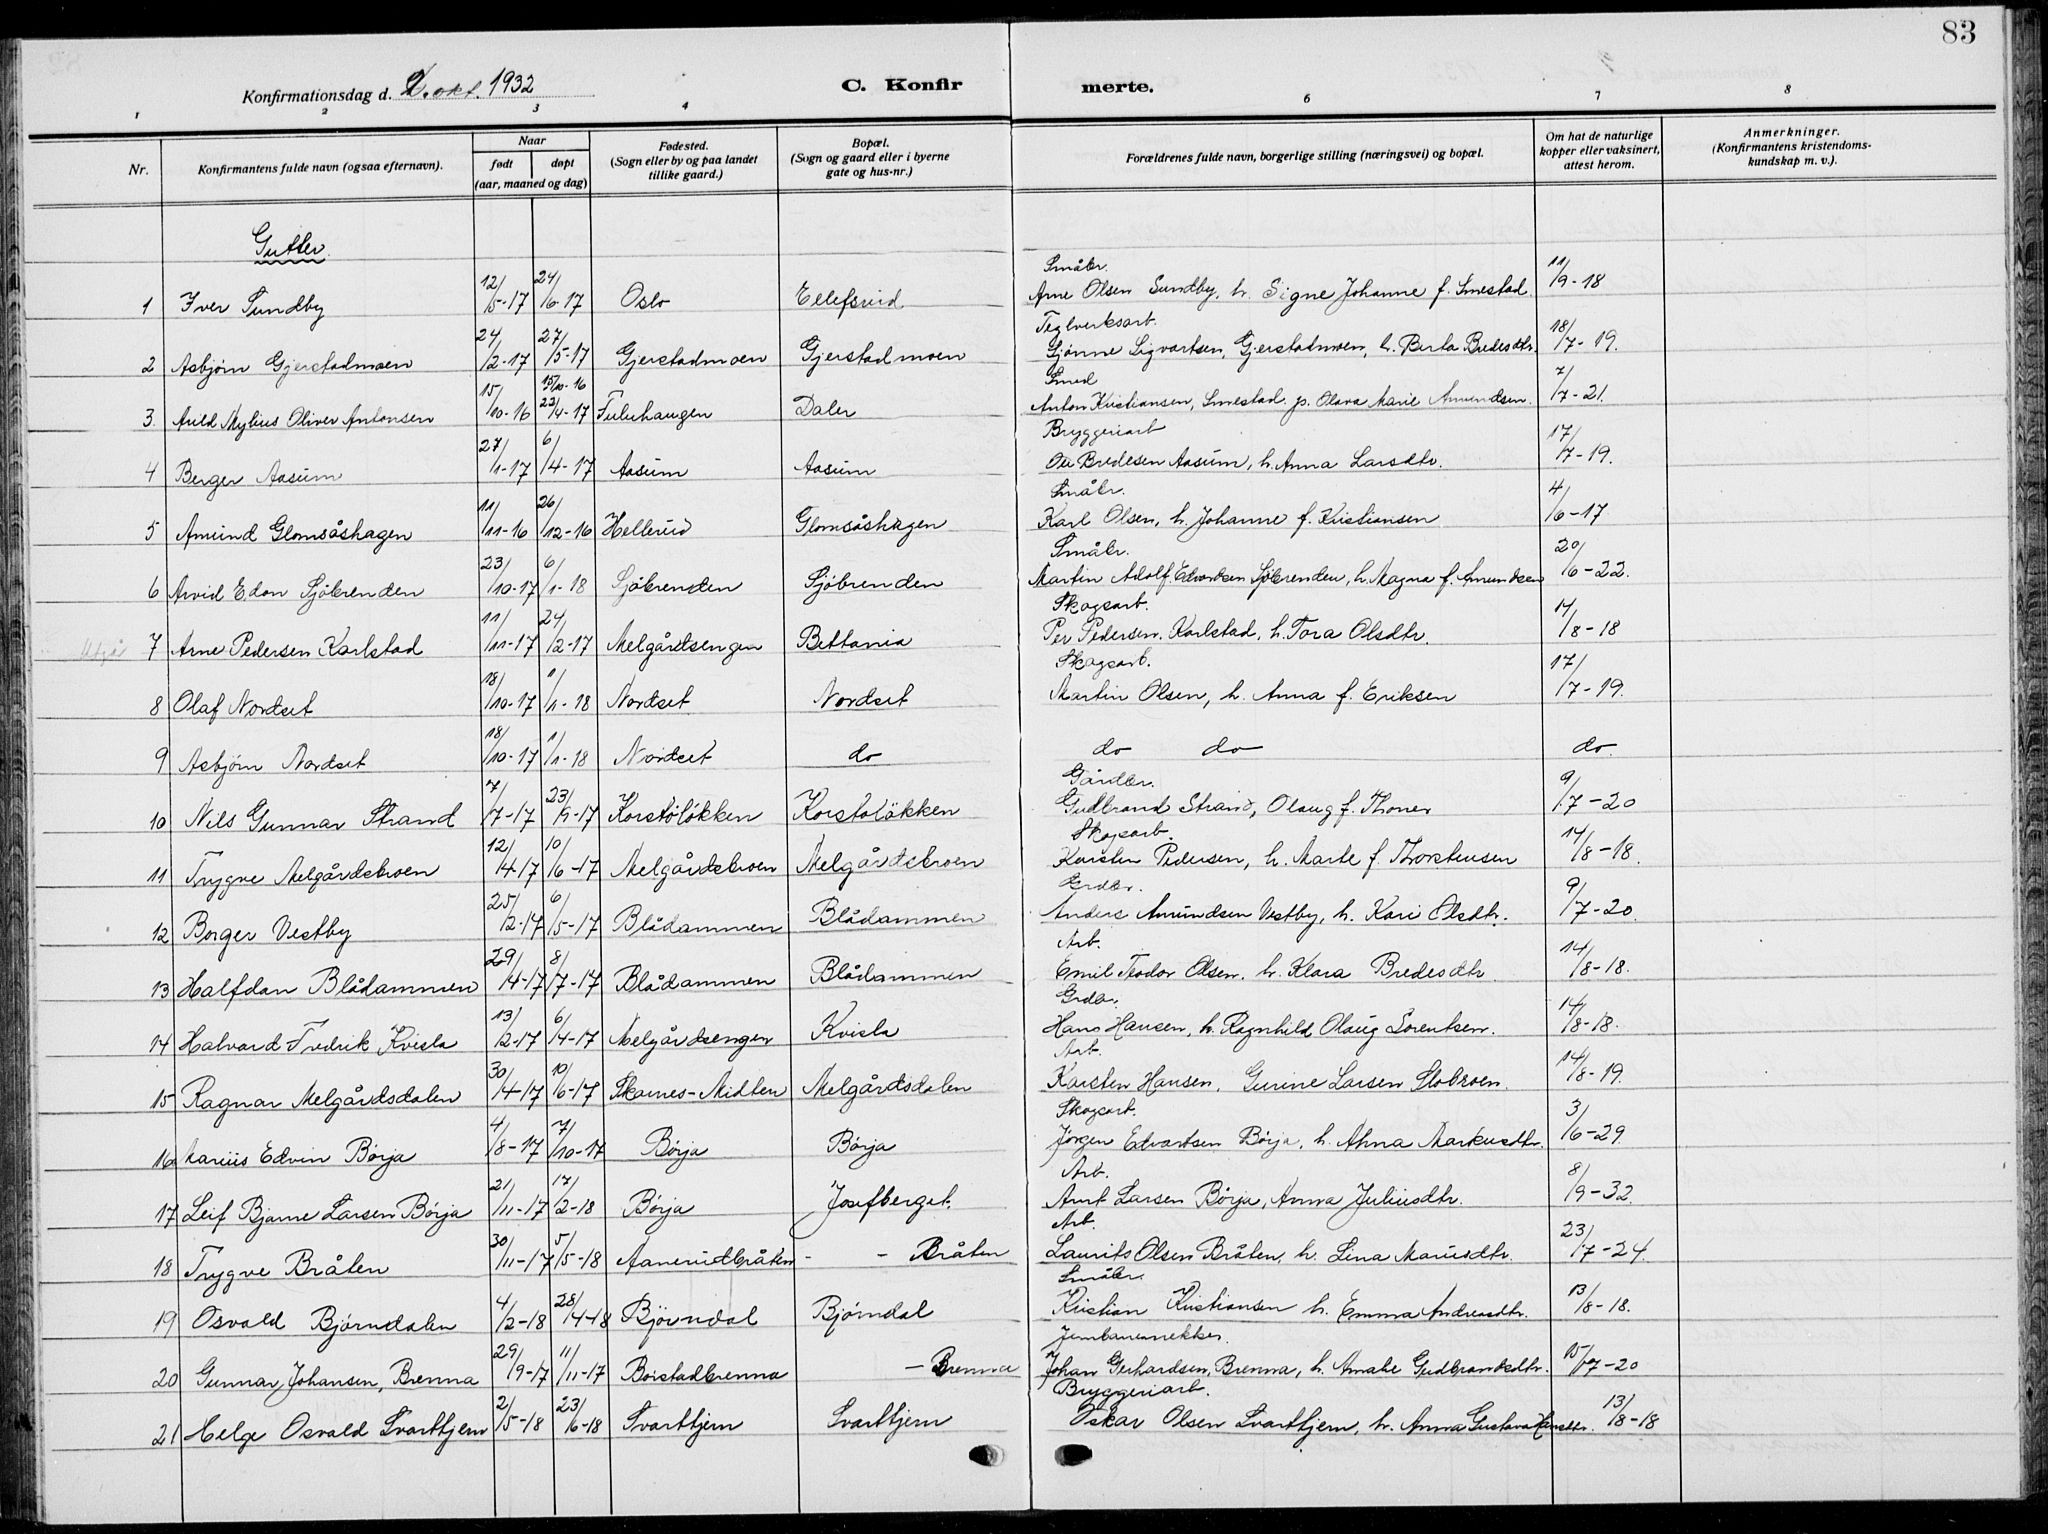 83
Konfirmationsdag d. 2. okt. 1932
C. Konfir merte.
1 2 3 4 6 7 8
Nr. Konfirmantens fulde navn (ogsaa efternavn). Naar født døpt (aar, maaned og dag) Fødested. (Sogn eller by og paa landet tillike gaard.) Bopæl. (Sogn og gaard eller i byerne gate og hus-nr.) Forældrenes fulde navn, borgerlige stilling (næringsvei) og bopæl. Om hat de naturlige kopper eller vaksinert, attest herom. Anmerkninger. (Konfirmantens kristendomskundskap m. v.).
Gutter.
1 Iver Sundby 12/5-17 24/6-17 Oslo Ellefsrud Småbr. Arne Olsen Sundby, h. Signe Johanne f. Smestad. 11/9-18
2 Asbjørn Gjerstadmoen 24/2-17 27/5-17 Gjerstadmoen Gjerstadmoen Teglverksarb. Gjønne Sigvartsen, Gjerstadmoen, h. Berta Bredesdtr. 18/7-19.
3. Arild Mylius Oliver Antonsen 15/10-16 15/10-16 22/4-17 Tuluhaugen Daler Smed Anton Kristiansen, Smestad. p. Olava Marie Amundsen. 7/7-21.
4 Berger Aasum 27/1-17 6/4-17 Aasum Aasum Bryggeriarb Ole Bredesen Aasum, h. Anna Larsdtr. 17/7-19.
5 Amund Glomsåshagen 11/11-16 26/12-16 Hellerud Glomsåshagen Småbr. Karl Olsen, h. Johanne f. Kristiansen 4/6-17
6 Arvid Edon Sjöbrenden 23/10-17 6/1-18 Sjöbrenden Sjöbrenden Småbr. Martin Adolf Edvardsen Sjöbrenden, h. Magna f. Amundsen 20/6-22.
7 Arne Pedersen Karlstad 11/11-17 24/2-17 Melgårdsengen Bettania Skogsarb. Per Pedersen. Karlstad, h. Tora Olsdtr. 14/8-18
8 Olaf Nordset 18/10-17 1/1-18 Nordset Nordset Skogsarb. Martin Olsen, h. Anna f. Eriksen 17/7-19.
9 Asbjørn Nordset 18/10-17 1/1-18 Nordset do do do do.
10 Nils Gunnar Strand 7/7-17 23/9-17 Korstölökken Korstolökken Gårdbr. Gudbrand Strand, Olaug f. Thoner 9/7-20
11 Trygve Melgårdsbroen 12/4-17 10/6-17 Melgårdsbroen Melgårdsbroen Skogsarb. Karsten Pedersen, h. Marte f. Thorstensen 14/8-18.
12 Borger Vestby 25/2-17 6/5-17 Blådammen Blådammen Grdbr. Anders Amundsen Vestby, h. Kari Olsdtr. 9/7-20.
13 Halfdan Blådammen 29/4-17 8/7-17 Blådammen Blådammen Arb. Emil Teodor Olsen. h. Klara Bredesdtr 14/8-18.
14 Halvard Fredrik Kvisla 13/2-17 6/4-17 Melgårdsengen Kvisla Grdbr. Hans Hansen, h. Ragnhild Olaug Sorentsen. 14/8-18.
15 Ragnar Melgårdsdalen 30/4-17 10/6-17 Skarnes-Midten Melgårdsdalen Arb. Karsten Hansen. Gurine Larsen Slobroen. 14/8-19.
16 Marius Edvin Börja 4/8-17 7/10-17 Börja Börja Skogsarb. Jörgen Edvartsen Börja, h. Alma Markusdtr. 3/6-29.
17 Leif Bjarne Larsen Börja 21/11-17 17/2-18 Börja Josefberget. Arb. Amt Larsen Börja, Anna Juliusdtr. 8/9-32.
18 Trygve Bråten 30/11-17 5/5-18 Aanerudbråten - - Bråten Arb. Laurits Olsen Bråten, h. Lina Mariusdtr. 23/7-24.
19 Osvald Björndalen 4/2-18 28/4-18 Björndal Björndal Småbr. Kristian Kristiansen h. Emma Andreasdtr. 13/8-18.
20 Gunnar Johansen, Brenna 29/9-17 11/11-17 Borstadbrenna - Brenna Jernbanemekker. Johan Gerhardsen, Brenna, h. Amalie Gudbrandsdtr. 15/7-20
21 Helge Osvald Svarttjern 2/5-18 23/6-18 Svarttjern Svarttjern Bryggeriarb. Oskar Olsen Svarttjern, h. Anna Gustava Hansdtr. 13/8-18